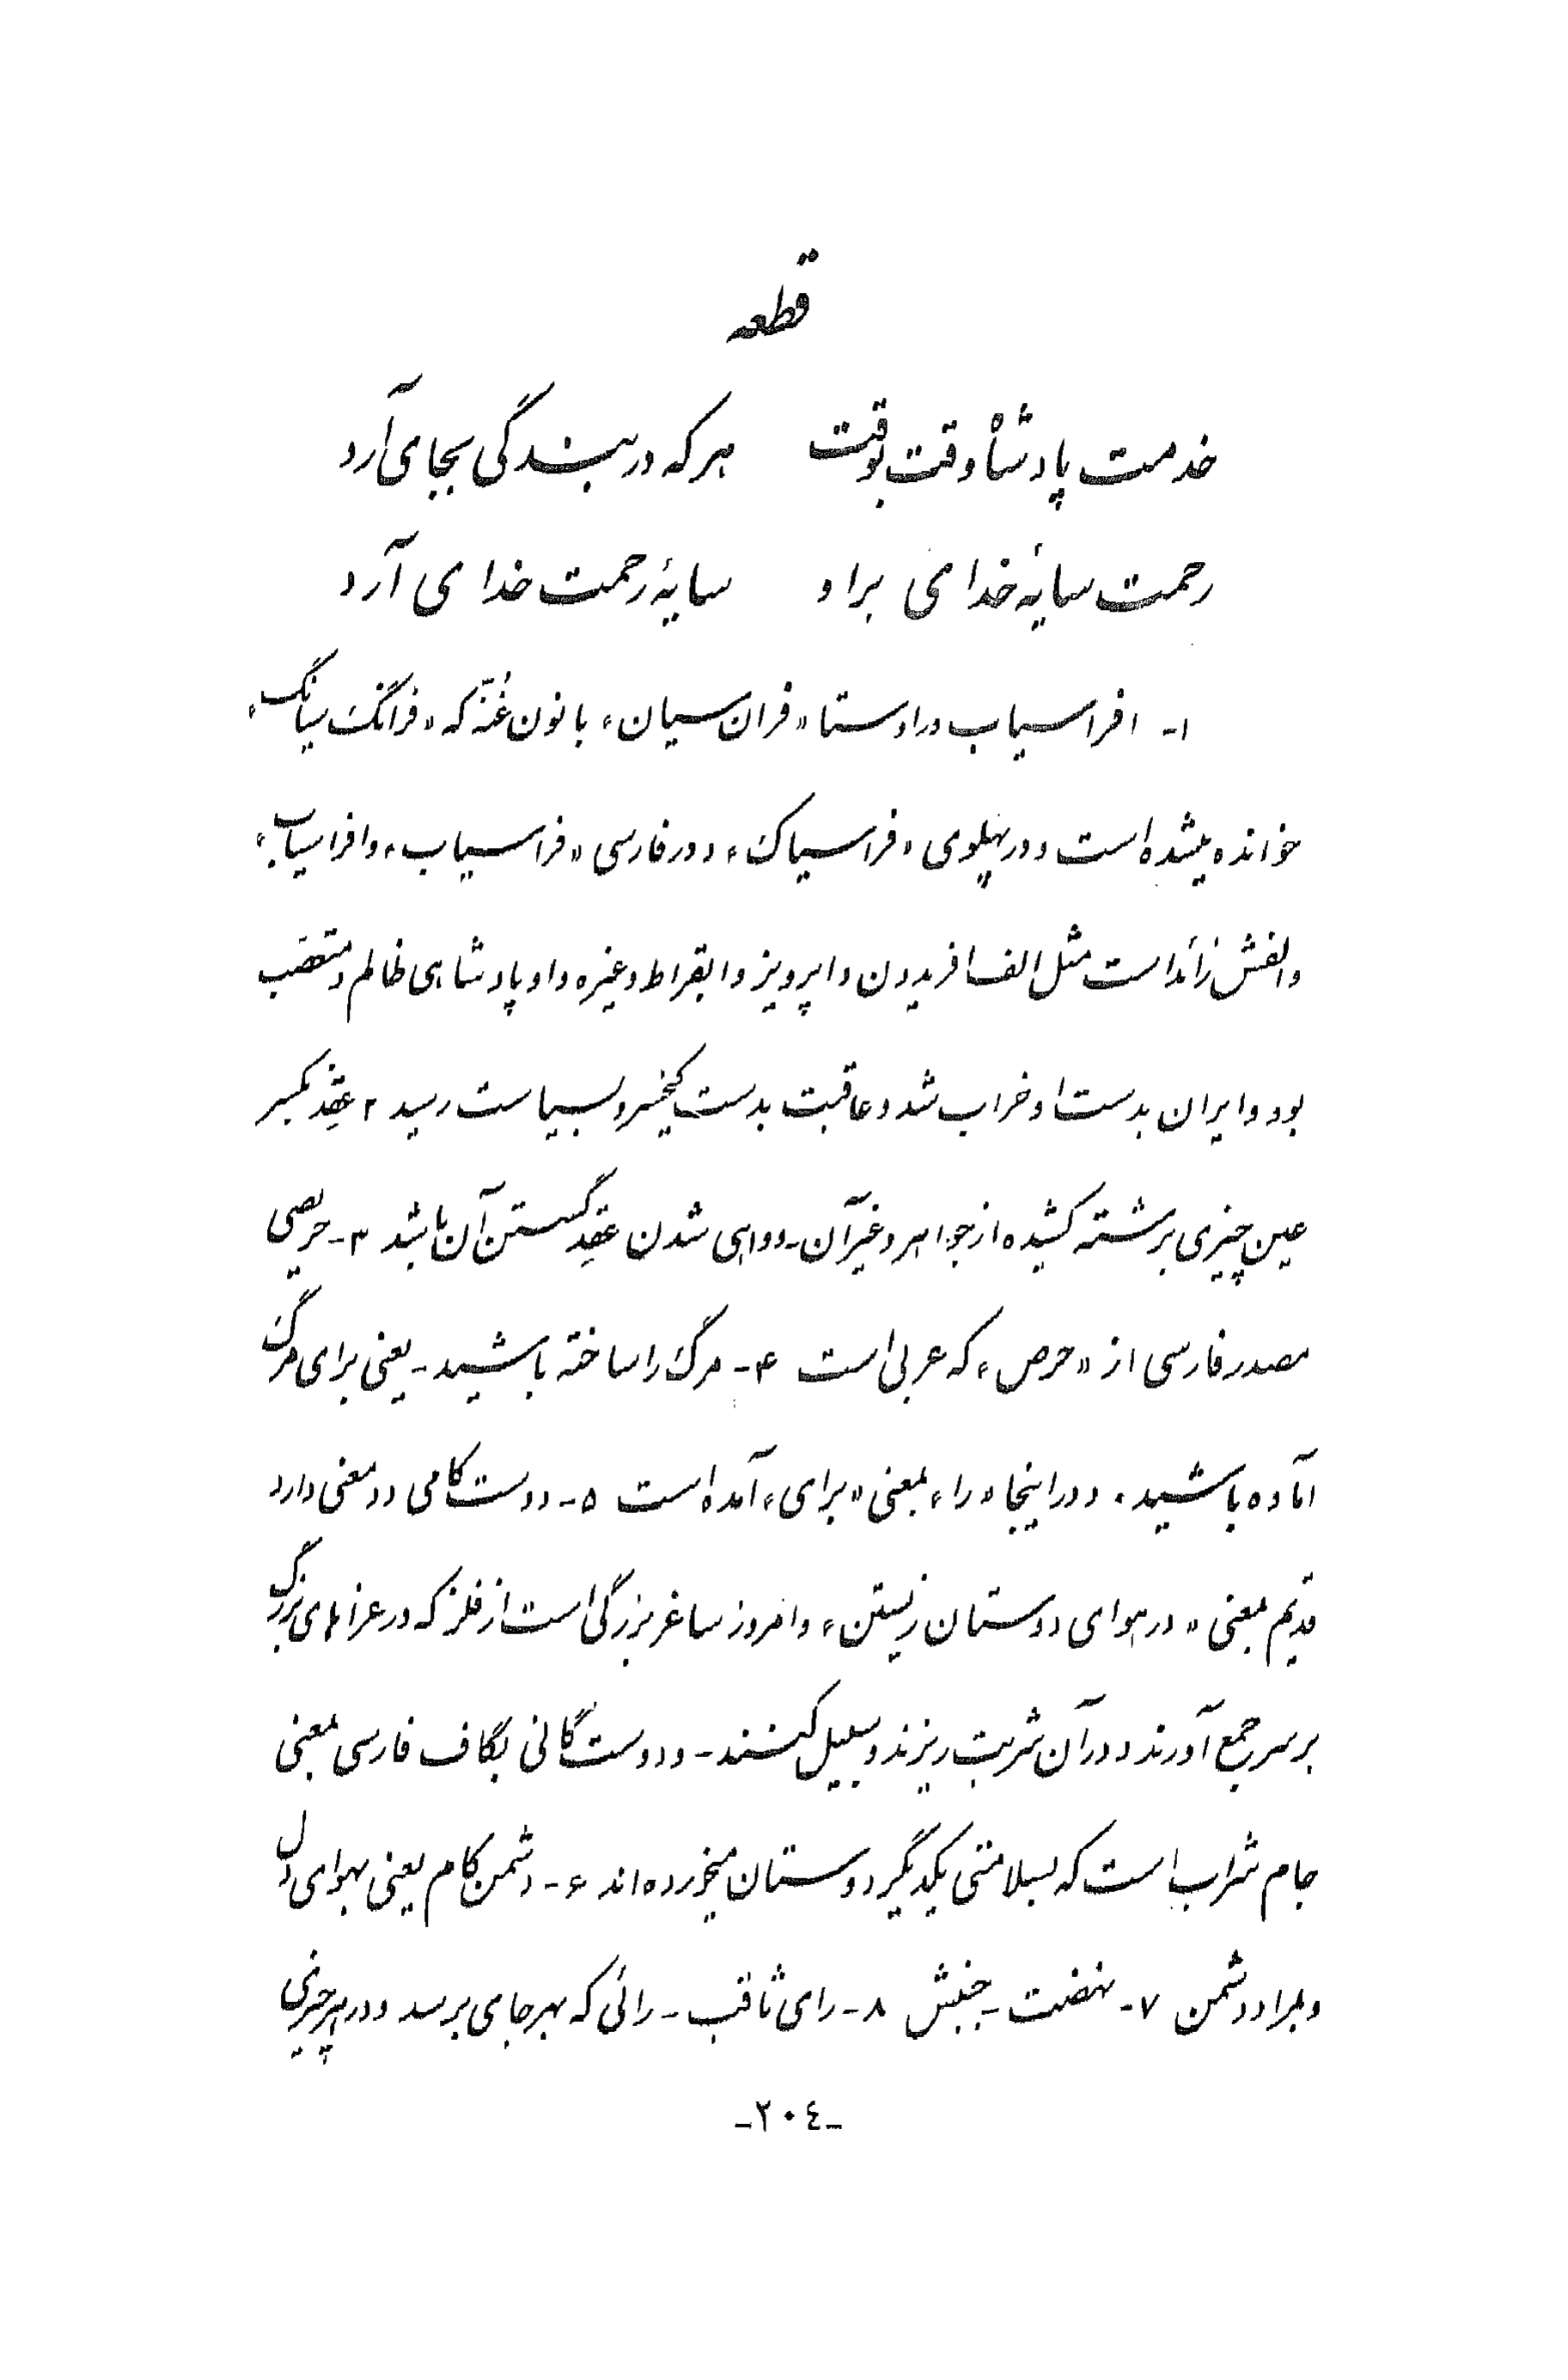 قطعه
خدمت پادشاه وقت بوقت هر که در بندگی بجای آرد
رحمت سایهٔ خدای بر او سایهٔ رحمت خدای آرد
۱- افراسیاب در اوستا «فران سیان» با نون غُنّه که «فرانگ سیانگ»
خوانده میشده است و در پهلوی «فراسیاک» و در فارسی «فراسیاب» و افراسیاب»
و الفش زائد است مثل الف افریدون و اپرویز و ابقراط و غیره و او پادشاهی ظالم و متعصّب
بود و ایران بدست او خراب شد و عاقبت بدست کیخسرو بسیاست رسید ۲ عِقد بکسر
عین چیزی برشته کشیده از جواهر و غیر آن - و واهی شدن عقدِ گسستن آن باشد ۳- حریصی
مصدر فارسی از «حرص» که عربی است ۴- مرگ را ساخته باشید - یعنی برای مرگ
آماده باشید. و در اینجا «را» بمعنی «برای» آمده است ۵- دوست کامی دو معنی دارد
قدیم بمعنی «در هوای دوستان زیستن» و امروز ساغر بزرگی است از فلز که در عزاهای بزرگ
بر سر جمع آورند و در آن شربت ریزند و سبیل کنند - و دوست گانی بگاف فارسی بمعنی
جام شراب است که بسلامتی یکدیگر دوستان میخورده‌اند ۶- دشمن کام یعنی بهوای دل
و بمراد دشمن ۷- نهضت - جنبش ۸- رای ثاقب - رائی که بهر جای برسد و در هر چیزی
-۲۰٤-